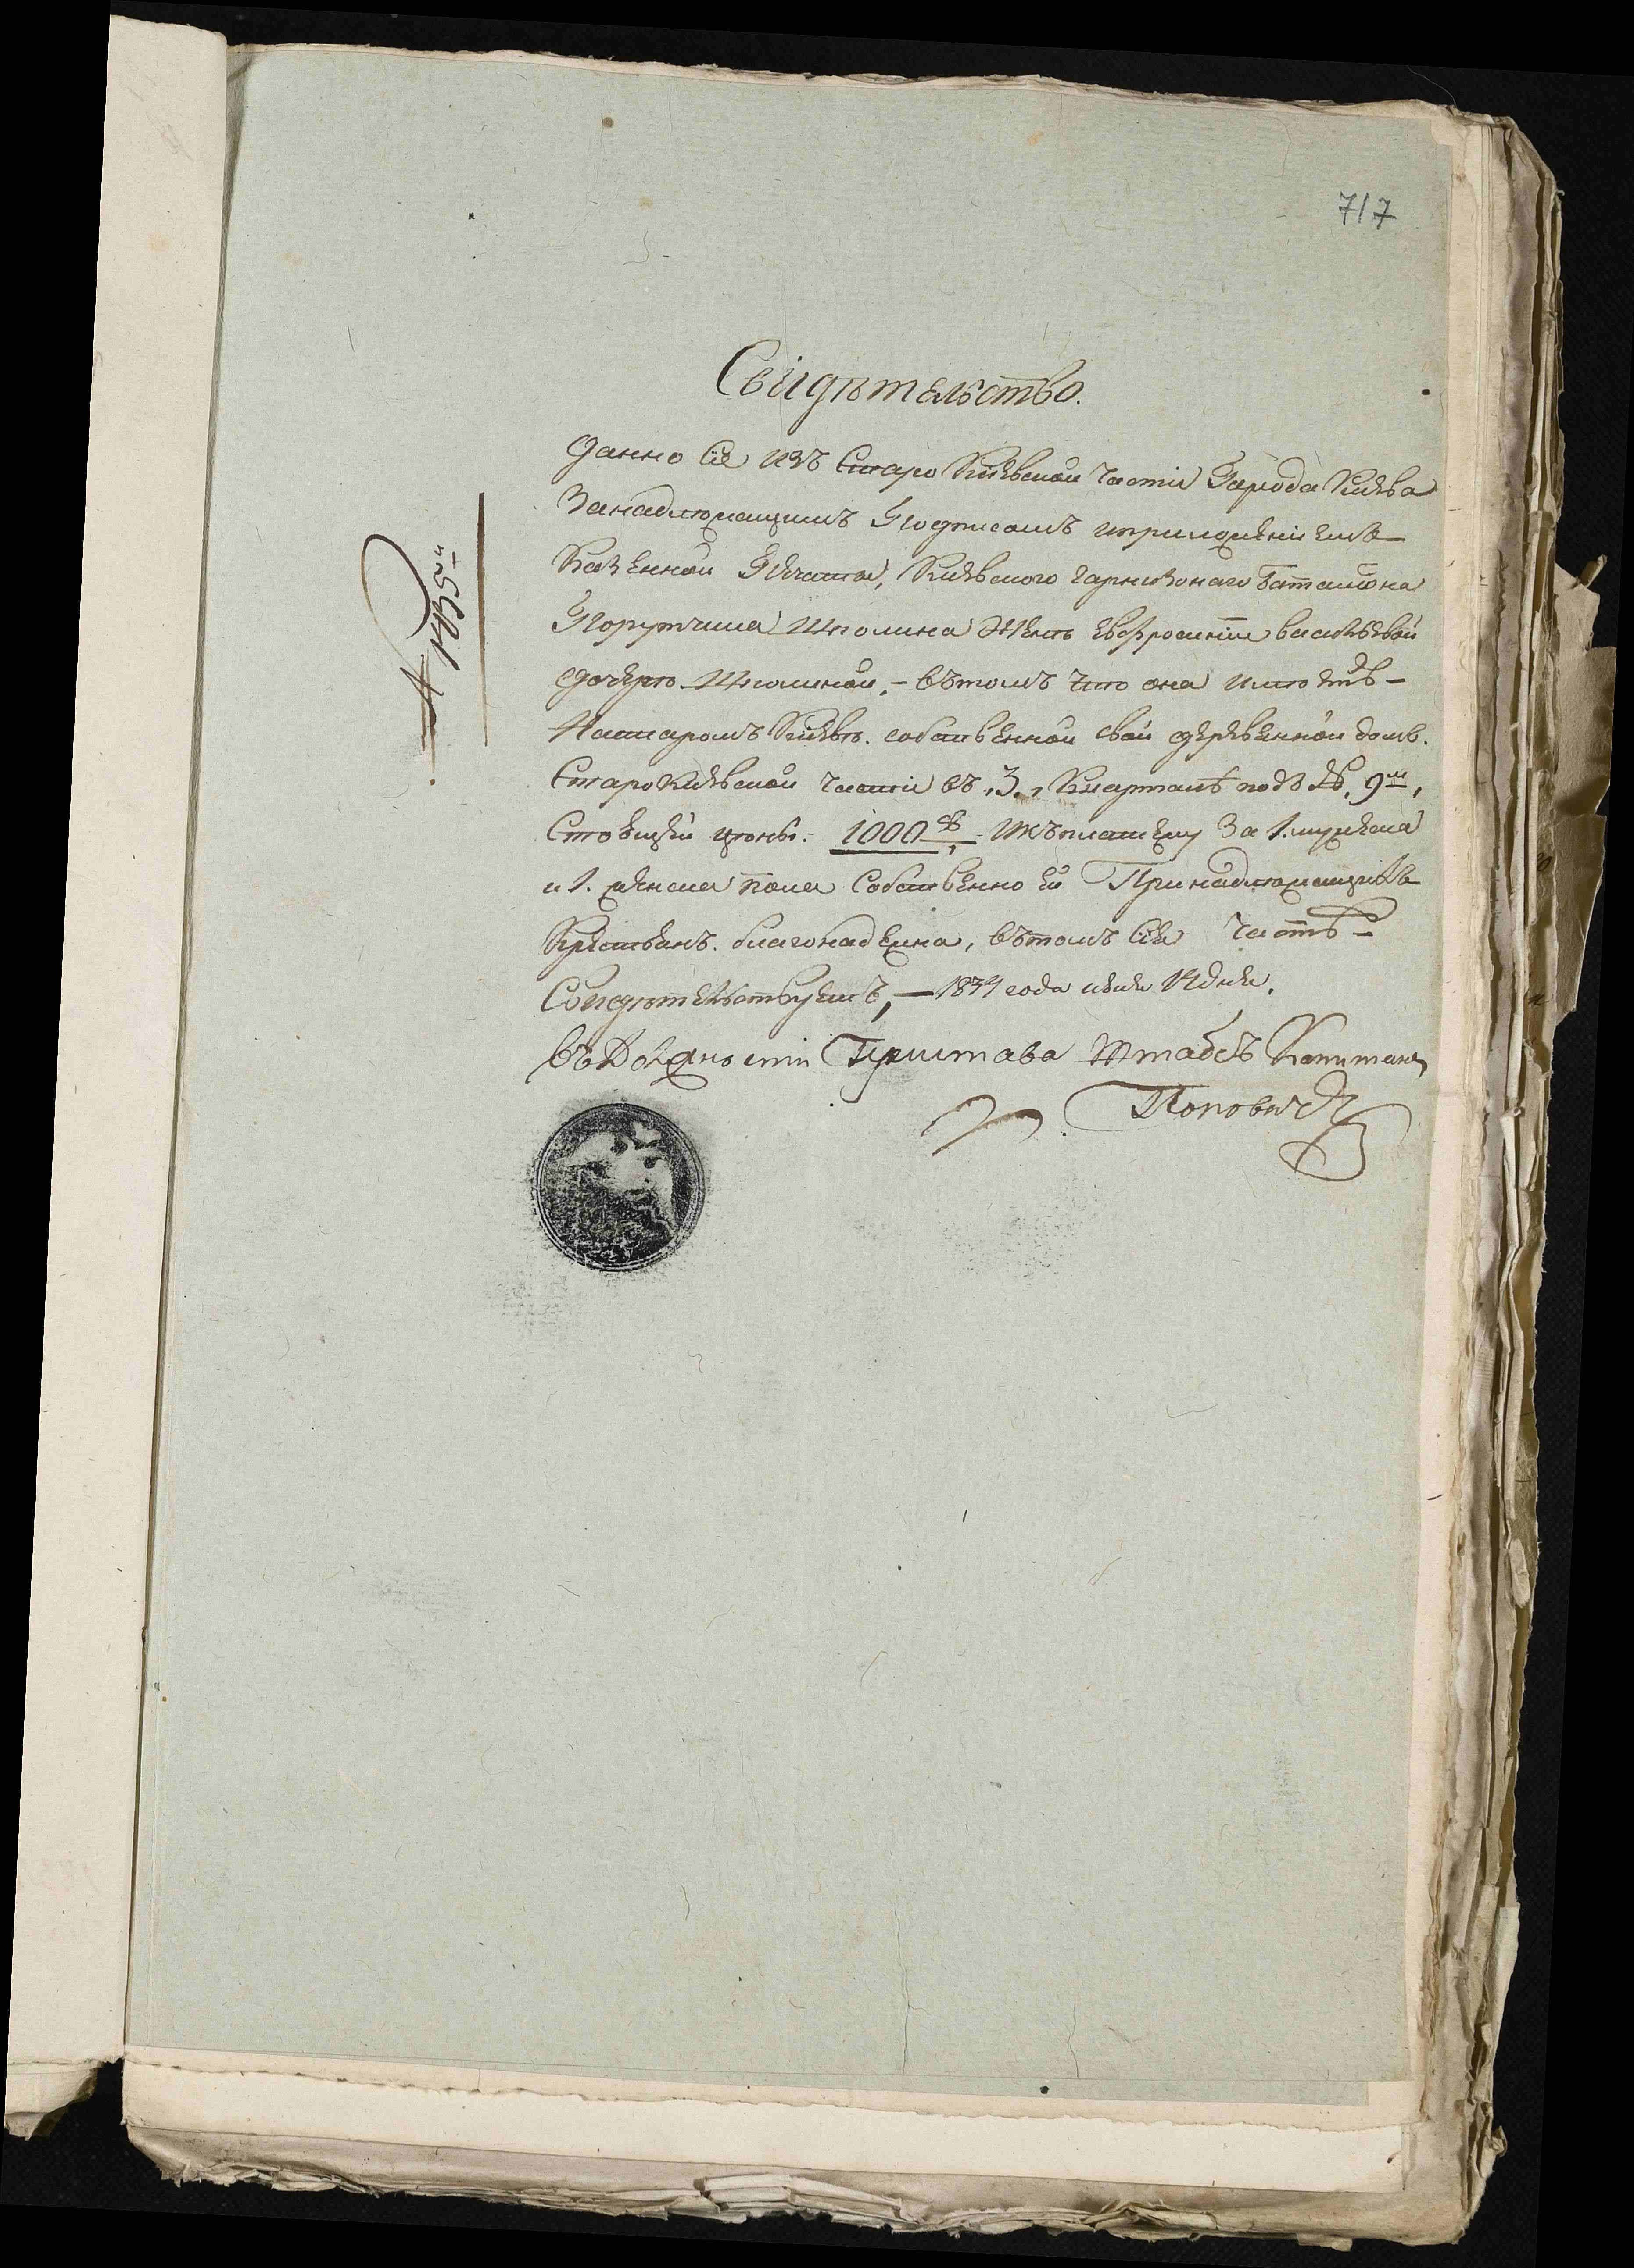 717
Свидѣтельство.
Данно Сіе изъ Старо Кіевской части Города Кіева
Занадлежащимъ Подписомъ иприложеніемъ
Казенной Печати, Кіевского гарнизонаго Баталіона
Порутчика Жене Евфросиніи васильевой
дочерѣ – вътомъ что она имѣетъ –
Настаромъ Кіевѣ. собственной свой деревянной домъ.
Старокіевской части въ 3, Кварталѣ подъ № 9м,
Стоющей цѣны: 1000 – За 1. мужеска
и 1. женска пола Собственно ей Принадлежащихъ
Крестьянъ. благонадежна, вътомъ Сія Часть –
Свидѣтельствуетъ, – 1834 года июля 14 дня.
въ Должности Пристава Штабсъ Капитанъ
Поповичъ
№